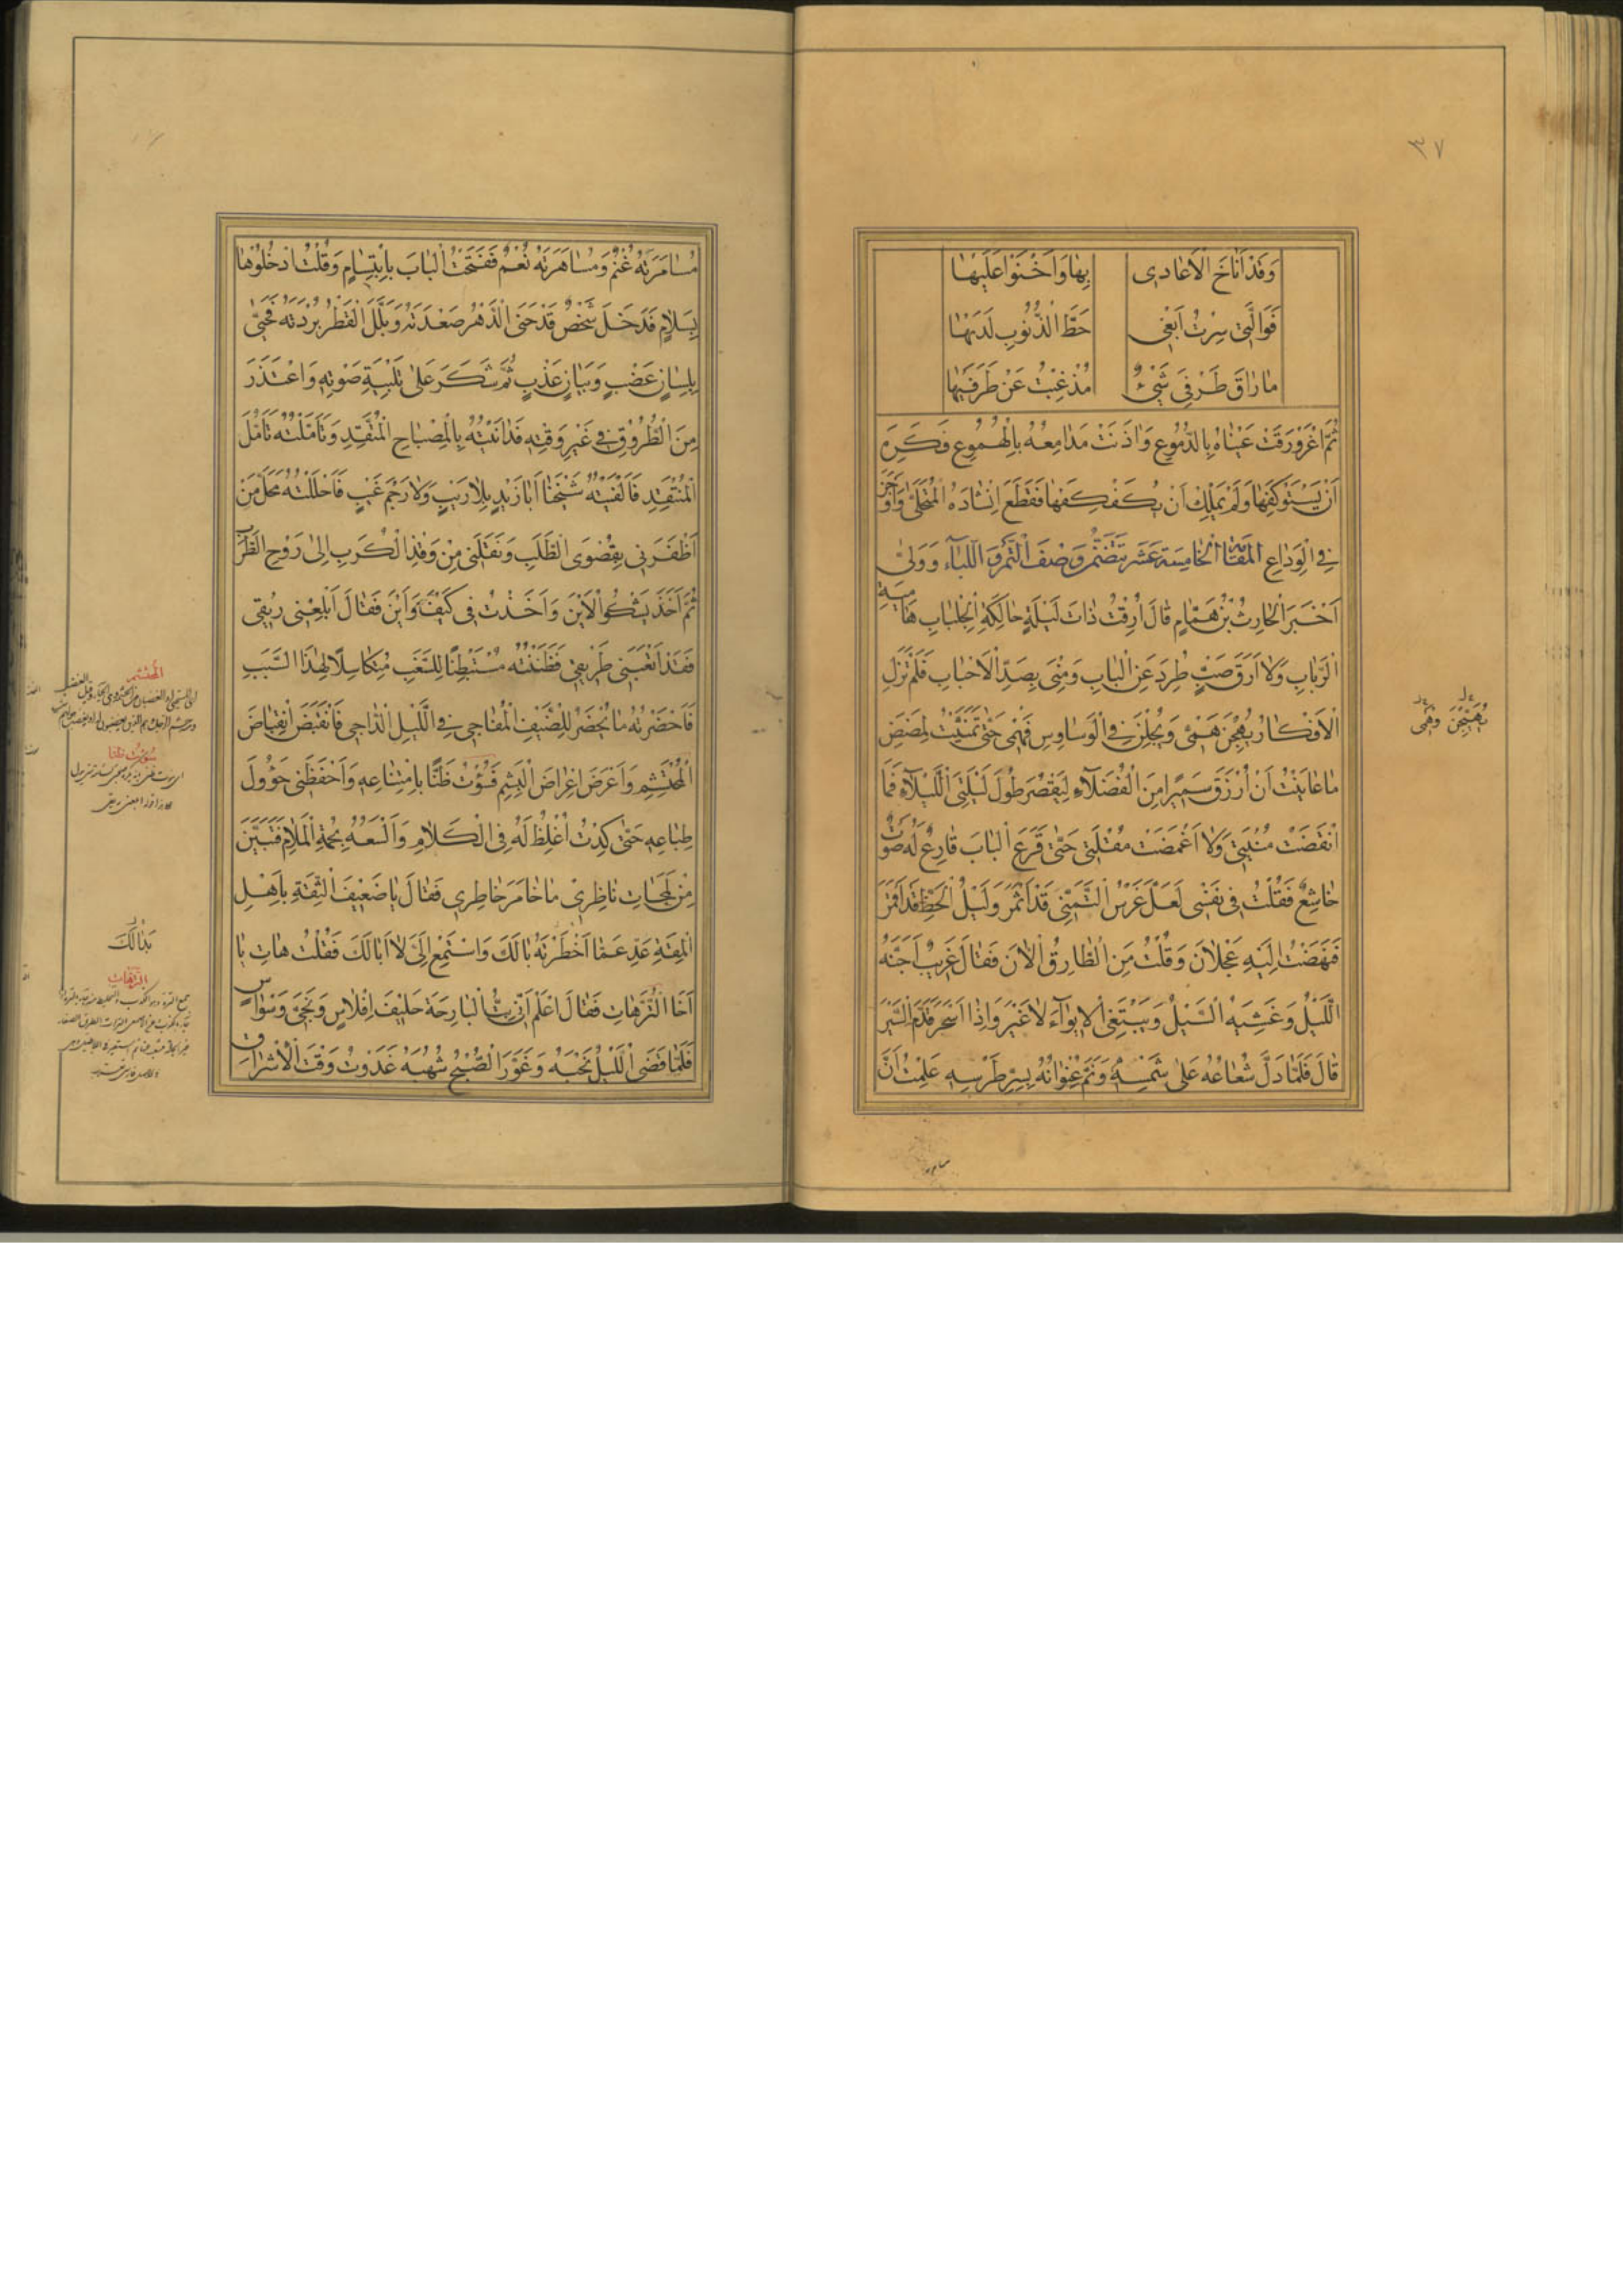 ٣٧
وَقَدْ أَنَاخَ الْاَعَادِي بِهَا وَاَخْنَوْا عَلَيْهَا
فَوَالَّتِي سِرْتُ اَبْغِي حَطَّ الذُّنُوبِ لَدَيْهَا
مَا رَاقَ طَرْفِيَ شَيْءٌ مُذْ غِبْتُ عَنْ طَرَفَيْهَا
ثُمَّ اغْرَوْرَقَتْ عَيْنَاهُ بِالدُّمُوعِ وَاٰذَنَتْ مَدَامِعُهُ بِالْهُمُوعِ فَكَرِهَ
اَنْ يَسْتَوْكِفَهَا وَلَمْ يَمْلِكْ اَنْ يُكَفْكِفَهَا فَقَطَعَ اِنْشَادَهُ الْمُسْتَحْلَى وَاَوْجَزَ
فِي الْوَدَاعِ وَوَلّٰى المَقَامَة الْخَامِسَة عَشَر تَتَضَمَّنُ وَصْفَ الْتَّمْرِ وَاللِّبَاءِ
اَخْبَرَ الْحَارِثُ بْنُ هَمَّامٍ قَالَ اَرِقْتُ ذَاتَ لَيْلَةٍ حَالِكَةِ الْجِلْبَابِ هَامِيَةِ
الرَّبَابِ وَلَا اَرَقَ صَبٍّ طُرِدَ عَنِ الْبَابِ وَمُنِيَ بِصَدِّ الْاَحْبَابِ فَلَمْ تَزَلِ
الْاَفْكَارُ يَهِجْنَ هَمِّي وَيُجِلْنَ فِي الْوَسَاوِسِ وَهْمِي حَتّٰى تَمَنَّيْتُ لِمَضَضِ
مَا عَانَيْتُ اَنْ اُرْزَقَ سَمِيرًا مِنَ الْفُضَلَاءِ لِيُقَصِّرَ طُولَ لَيْلَتِيَ اللَّيْلَاءِ فَمَا
انْقَضَتْ مُنْيَتِي وَلَا اَغْمَضَتْ مُقْلَتِي حَتّٰى قَرَعَ الْبَابَ قَارِعٌ لَهُ صَوْتٌ
خَاشِعٌ فَقُلْتُ فِي نَفْسِي لَعَلَّ غَرْسَ التَّمَنِّي قَدْ اَثْمَرَ وَلَيْلَ الْحَظِّ قَدْ اَقْمَرَ
فَنَهَضْتُ اِلَيْهِ عَجْلَانَ وَقُلْتُ مَنِ الطَّارِقُ الْاٰنَ فَقَالَ غَرِيبٌ اَجَنَّهُ
اللَّيْلُ وَغَشِيَهُ السَّيْلُ وَيَبْتَغِي الْاِيوَاءَ لَا غَيْرَ وَاِذَا اَسْحَرَ قَدَّمَ السَّيْرَ
قَالَ فَلَمَّا دَلَّ شُعَاعُهُ عَلٰى شَمْسِهِ وَنَمَّ عُنْوَانُهُ بِسِرِّ طِرْسِهِ عَلِمْتُ اَنَّ
يُهَيِّجْنَ وَهْمِي
مُسَامَرَتَهُ غُنْمٌ وَمُسَاهَرَتَهُ نُعْمٌ فَفَتَحْتُ الْبَابَ بِابْتِسَامٍ وَقُلْتُ ادْخُلُوهَا
بِسَلَامٍ فَدَخَلَ شَخْصٌ قَدْ حَنَى الدَّهْرُ صَعْدَتَهُ وَبَلَّلَ الْقَطْرُ بُرْدَتَهُ فَحَيّٰى
بِلِسَانٍ عَضْبٍ وَبَيَانٍ عَذْبٍ ثُمَّ شَكَرَ عَلٰى تَلْبِيَةِ صَوْتِهِ وَاعْتَذَرَ
مِنَ الطُّرُوقِ فِي غَيْرِ وَقْتِهِ فَدَانَيْتُهُ بِالْمِصْبَاحِ الْمُتَّقِدِ وَتَاَمَّلْتُهُ تَاَمُّلَ
الْمُنْتَقِدِ فَاَلْفَيْتُهُ شَيْخَنَا اَبَا زَيْدٍ بِلَا رَيْبٍ وَلَا رَجْمِ غَيْبٍ فَاَحْلَلْتُهُ مَحَلَّ مَنْ
اَظْفَرَنِي بِقُصْوَى الطَّلَبِ وَنَقَلَنِي مِنْ وَقْذِ الْكُرَبِ اِلٰى رَوْحِ الطَّرَبِ
ثُمَّ اَخَذَ يَشْكُوا الْاَيْنَ وَاَخَذْتُ فِي كَيْفَ وَاَيْنَ فَقَالَ اَبْلِعْنِي رِيقِي
فَقَدْ اَتْعَبَنِي طَرِيقِي فَظَنَنْتُهُ مُسْتَبْطِنًا لِلسَّغَبِ مُتَكَاسِلًا لِهٰذَا السَّبَبِ
فَاَحْضَرْتُهُ مَا يُحْضَرُ لِلضَّيْفِ الْمُفَاجِي فِي اللَّيْلِ الدَّاجِي فَانْقَبَضَ انْقِبَاضَ
الْمُحْتَشِمِ وَاَعْرَضَ اِعْرَاضَ الْبَشِمِ فَسُؤْتُ ظَنًّا بِامْتِنَاعِهِ وَاَحْفَظَنِي حَؤُولُ
طِبَاعِهِ حَتّٰى كِدْتُ اُغْلِظُ لَهُ فِي الْكَلَامِ وَاَلْسَعُهُ بِحُمَةِ الْمَلَامِ فَتَبَيَّنَ
مِنْ لَمَحَاتِ نَاظِرِي مَا خَامَرَ خَاطِرِي فَقَالَ يَا ضَعِيفَ الثِّقَةِ بِاَهْلِ
الْمِقَةِ عَدِّ عَمَّا اَخْطَرْتَهُ بَالَكَ وَاسْتَمِعْ اِلَيَّ لَا اَبَا لَكَ فَقُلْتُ هَاتِ يَا
اَخَا التُّرَّهَاتِ فَقَالَ اعْلَمْ اَنِّي بِتُّ الْبَارِحَةَ حَلِيفَ اِفْلَاسٍ وَنَجِيَّ وَسْوَاسٍ
فَلَمَّا قَضَى اللَّيْلُ نَحْبَهُ وَغَوَّرَ الصُّبْحُ شُهُبَهُ غَدَوْتُ وَقْتَ الْاِشْرَاقِ
المحتشم
سؤت ظنا
بَدَا لَكَ
الترهات